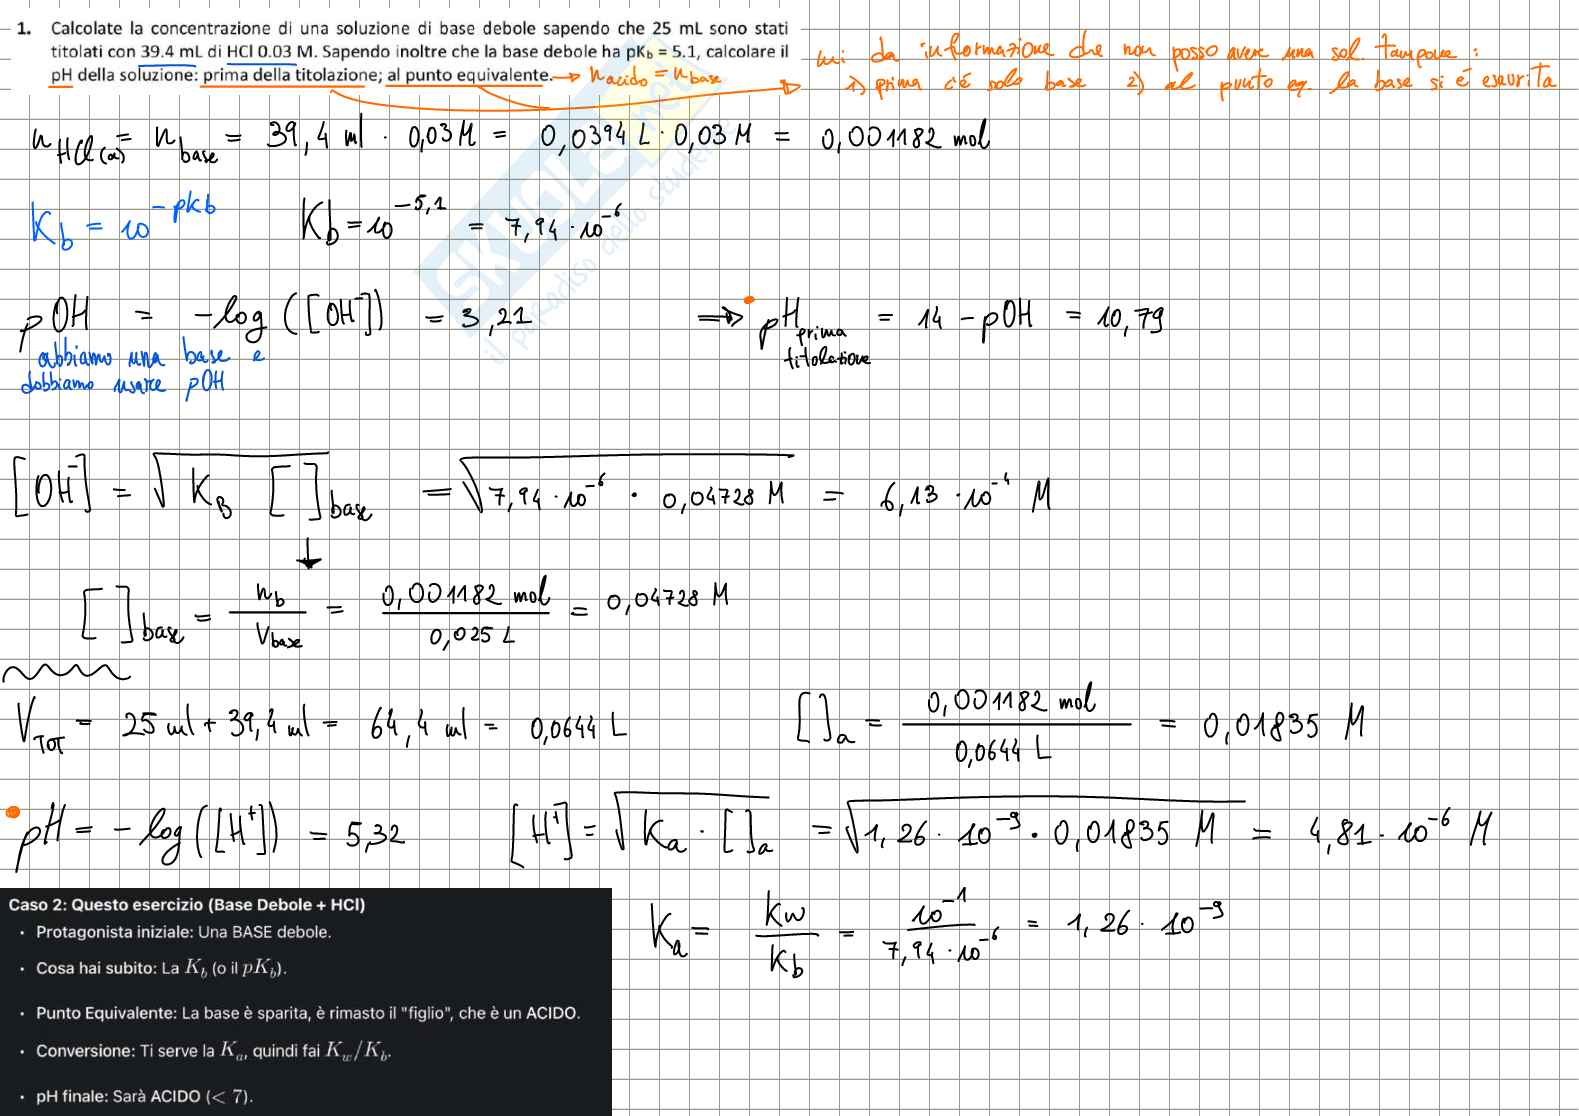 1. Calcolate la concentrazione di una soluzione di base debole sapendo che 25 mL sono stati
titolati con 39.4 mL di HCl 0.03 M. Sapendo inoltre che la base debole ha pKb = 5.1, calcolare il
pH della soluzione: prima della titolazione; al punto equivalente. → n acido = n base
mi da informazione che non posso avere una sol. tampone :
1) prima c'é solo base 2) al punto eq. la base si é esaurita
n HCl (a) = n base = 39,4 ml · 0,03 M = 0,0394 L · 0,03 M = 0,001182 mol
Kb = 10^-pkb Kb = 10^-5,1 = 7,94 · 10^-6
pOH = -log ([OH^-]) = 3,21 ⟹ pH prima titolazione = 14 - pOH = 10,79
abbiamo una base e
dobbiamo usare pOH
[OH^-] = √(K_B [ ]base) = √(7,94 · 10^-6 · 0,04728 M) = 6,13 · 10^-4 M
↓
[ ]base = nb / Vbase = 0,001182 mol / 0,025 L = 0,04728 M
V TOT = 25 ml + 39,4 ml = 64,4 ml = 0,0644 L [ ]a = 0,001182 mol / 0,0644 L = 0,01835 M
pH = - log ([H^+]) = 5,32 [H^+] = √(Ka · [ ]a) = √(1,26 · 10^-9 · 0,01835 M) = 4,81 · 10^-6 M
Ka = Kw / Kb = 10^-1 / 7,94 · 10^-6 = 1,26 · 10^-9
Caso 2: Questo esercizio (Base Debole + HCl)
• Protagonista iniziale: Una BASE debole.
• Cosa hai subito: La Kb (o il pKb).
• Punto Equivalente: La base è sparita, è rimasto il "figlio", che è un ACIDO.
• Conversione: Ti serve la Ka, quindi fai Kw/Kb.
• pH finale: Sarà ACIDO (< 7).